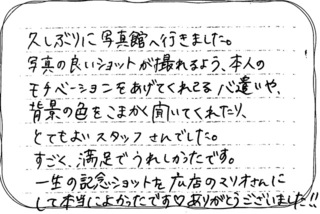 久しぶりに写真館へ行きました。
写真の良いショットが撮れるよう、本人の
モチベーションをあげてくれる心遣いや、
背景の色をこまかく聞いてくれたり、
とてもよいスタッフさんでした。
すごく、満足でうれしかったです。
一生の記念ショットを広店のマリオさんに
して本当によかったです♡ありがとうございました!!